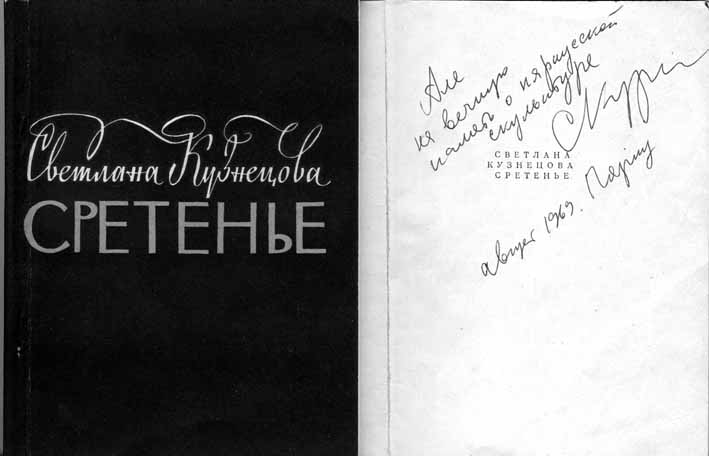 Светлана Кузнецова
СРЕТЕНЬЕ
Але
на вечную
память о пярнуской
скульптуре
СВЕТЛАНА
КУЗНЕЦОВА
СРЕТЕНЬЕ
август 1969. Пярну